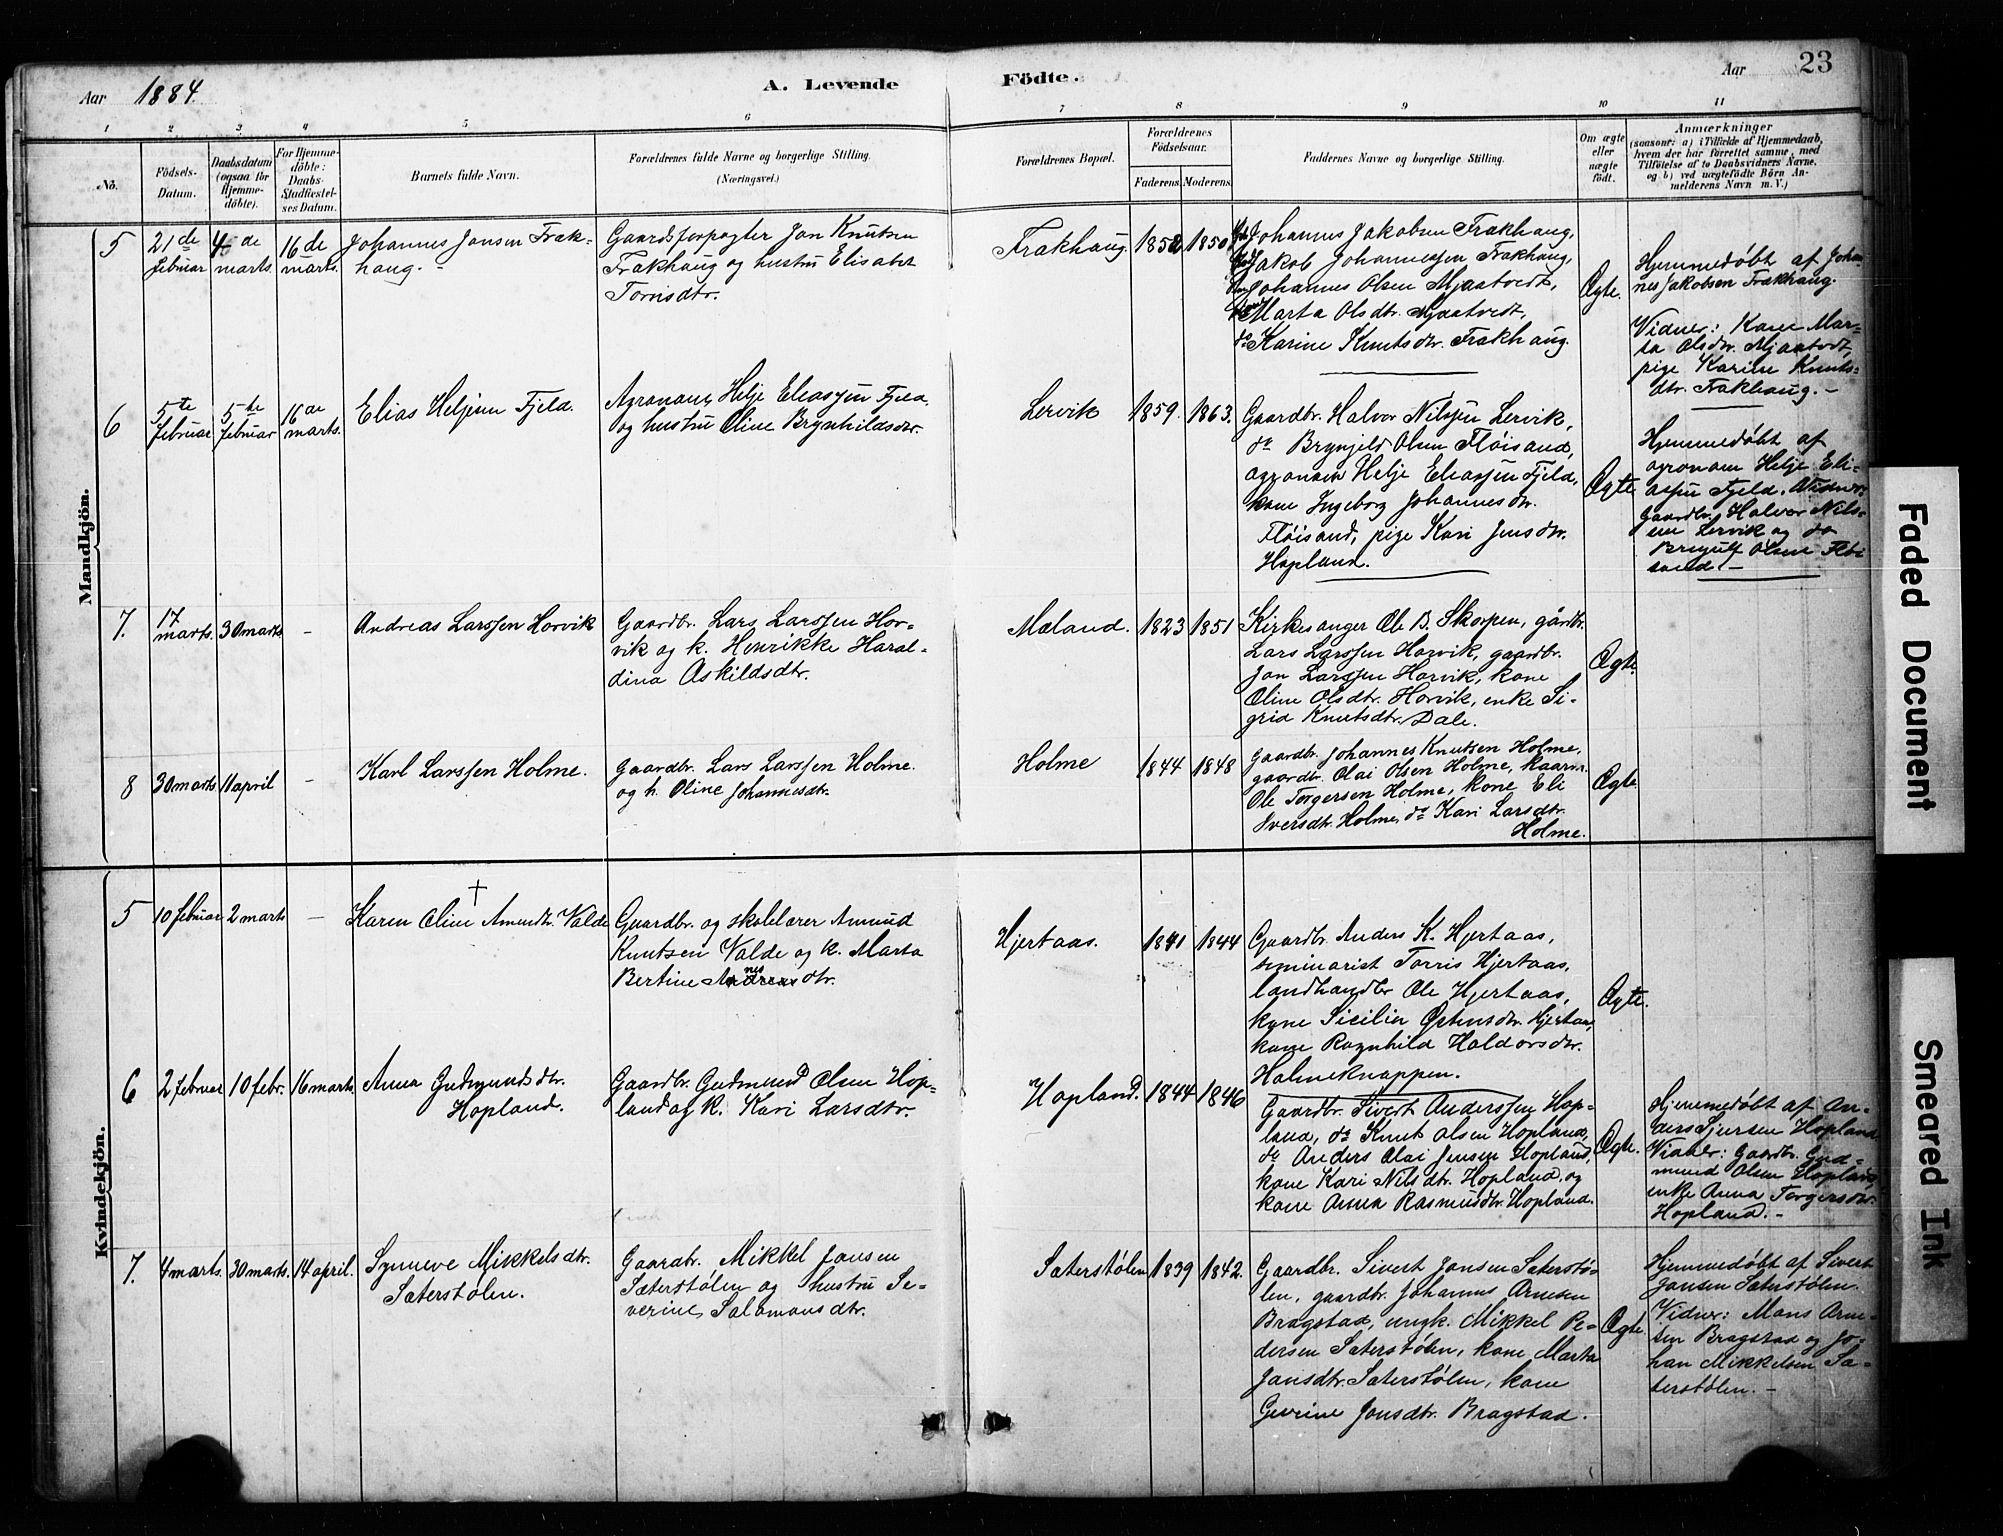 Aar 1884
A. Levende
Födte.
Aar
23
1 2 3 4 5 6 7 8 9 10 11
No.
Födsels-
Datum.
Daabsdatum
(ogsaa for
Hjemme-
döbte).
For Hjemme-
döbte:
Daabs-
Stadfæstel-
ses Datum.
Barnets fulde Navn.
Forældrenes fulde Navne og borgerlige Stilling.
(Næringsvei.)
Forældrenes Bopæl.
Forældrenes
Födselsaar.
Faderens. Moderens.
Faddernes Navne og borgerlige Stilling.
Om ægte
eller
uægte
födt.
Anmærkninger
(saasom: a) i Tilfælde af Hjemmedaab,
hvem der har forrettet samme, med
Tilföielse af to Daabsvidners Navne,
og b) ved uægtefödte Börn An-
melderens Navn m. V.)
Mandkjön.
5
21de
februar
4de
marts.
16de
marts.
Johannes Jonsen Frak-
haug. -
Gaardsforpagter Jon Knutsen
Frakhaug og hustru Elisabet
Tornisdtr.
Frakhaug.
1852
1850
Johannes Jakobsen Frakhaug,
Jakob Johannessen Frakhaug,
Johannes Olsen Mjaatvedt,
Marta Olsdtr. Mjaatvedt,
do Karine Knutsdtr. Frakhaug.
Ægte.
Hjemmedøbt af Johan-
nes Jakobsen Frakhaug.
Vidner: Kone Mar-
ta Olsdtr. Mjaatvedt,
pige Karine Knuts-
dtr. Frakhaug. -
6
5te
februar
5te
februar
16de
marts.
Elias Heljesen Fjeld.
Agronom Helje Eliassen Fjeld
og hustru Oline Brynhildsdtr.
Lervik
1859.
1863.
Gaardbr. Halvor Nilssen Lervik,
do Brynjeld Olsen Fløisand,
agronom Helje Eliassen Fjeld,
kone Ingeborg Johannesdtr.
Fløisand, pige Kari Jensdtr.
Hopland.
Ægte
Hjemmedøbt af
agronom Helje Eli-
assen Fjeld. Vidner:
Gaardbr. Halvor Nils-
sen Lervik og do
Brynjulf Olsen Fløi-
sand. -
7.
17
marts.
30 marts
-
Andreas Larssen Horvik
Gaardbr. Lars Larssen Hor-
vik og k. Henrikke Haral-
dina Askildsdtr.
Mæland.
1823
1851
Kirkesanger Ole B. Skorpen, gårdbr.
Lars Larssen Horvik, gaardbr.
Jon Larssen Horvik, kone
Oline Olsdtr. Horvik, enke Si-
grid Knutsdtr. Dale.
Ægte.
8
30 marts
11 april
-
Karl Larssen Holme.
Gaardbr. Lars Larssen Holme
og h. Oline Johannesdtr.
Holme
1844
1848
Gaardbr. Johannes Knutsen Holme,
gaardbr. Olai Olsen Holme, kaarm.
Ole Torgersen Holme, kone Eli
Iversdtr. Holme, do Kari Larsdtr.
Holme.
Ægte
Kvindekjön.
5
10 februar
2 marts
-
Karen Oline Amundtr. Valde
Gaardbr. og skolelærer Amund
Knutsen Valde og k. Marta
Bertine
Hjertaas.
1841
1844
Gaardbr. Anders K. Hjertaas,
seminarist Torris Hjertaas,
landhandler Ole Hjertaas,
kone Sicilia Østensdtr. Hjertaas,
kone Ragnhild Haldorsdtr.
Holmeknappen.
Ægte.
6
2 februar
10 febr.
16 marts.
Anna Gudmundsdtr.
Hopland.
Gaardbr. Gudmund Olsen Hop-
land og k. Kari Larsdtr.
Hopland.
1844
1846
Gaardbr. Sivert Anderssen Hop-
land, do Knut Olsen Hopland,
do Anders Olai Jensen Hopland,
kone Kari Nilsdtr. Hopland og
kone Anna Rasmusdtr. Hopland.
Ægte.
Hjemmedøbt af An-
ders Sjursen Hopland
Vidner: Gaardbr. Gud-
mund Olsen Hopland,
enke Anna Torgersdtr.
Hopland. -
7.
4 marts.
30 marts.
14 april.
Synneve Mikkelsdtr.
Sæterstølen.
Gaardbr. Mikkel Jonsen
Sæterstølen og hustru Se-
verine Salamonsdtr.
Sæterstølen
1839
1842.
Gaardbr. Sivert Jonsen Sæterstø-
len, gaardbr. Johannes Arnesen
Bragstad, ungk. Mikkel Pe-
dersen Sæterstølen, kone Marta
Jonsdtr. Sæterstølen, kone
Severine Jonsdtr. Bragstad.
Ægte
Hjemmedøbt af Sivert
Jonsen Sæterstølen.
Vidner: Mons Arne-
sen Bragstad og Jo-
han Mikkelsen Sæ-
terstølen. -
Faded Document
Smeared Ink